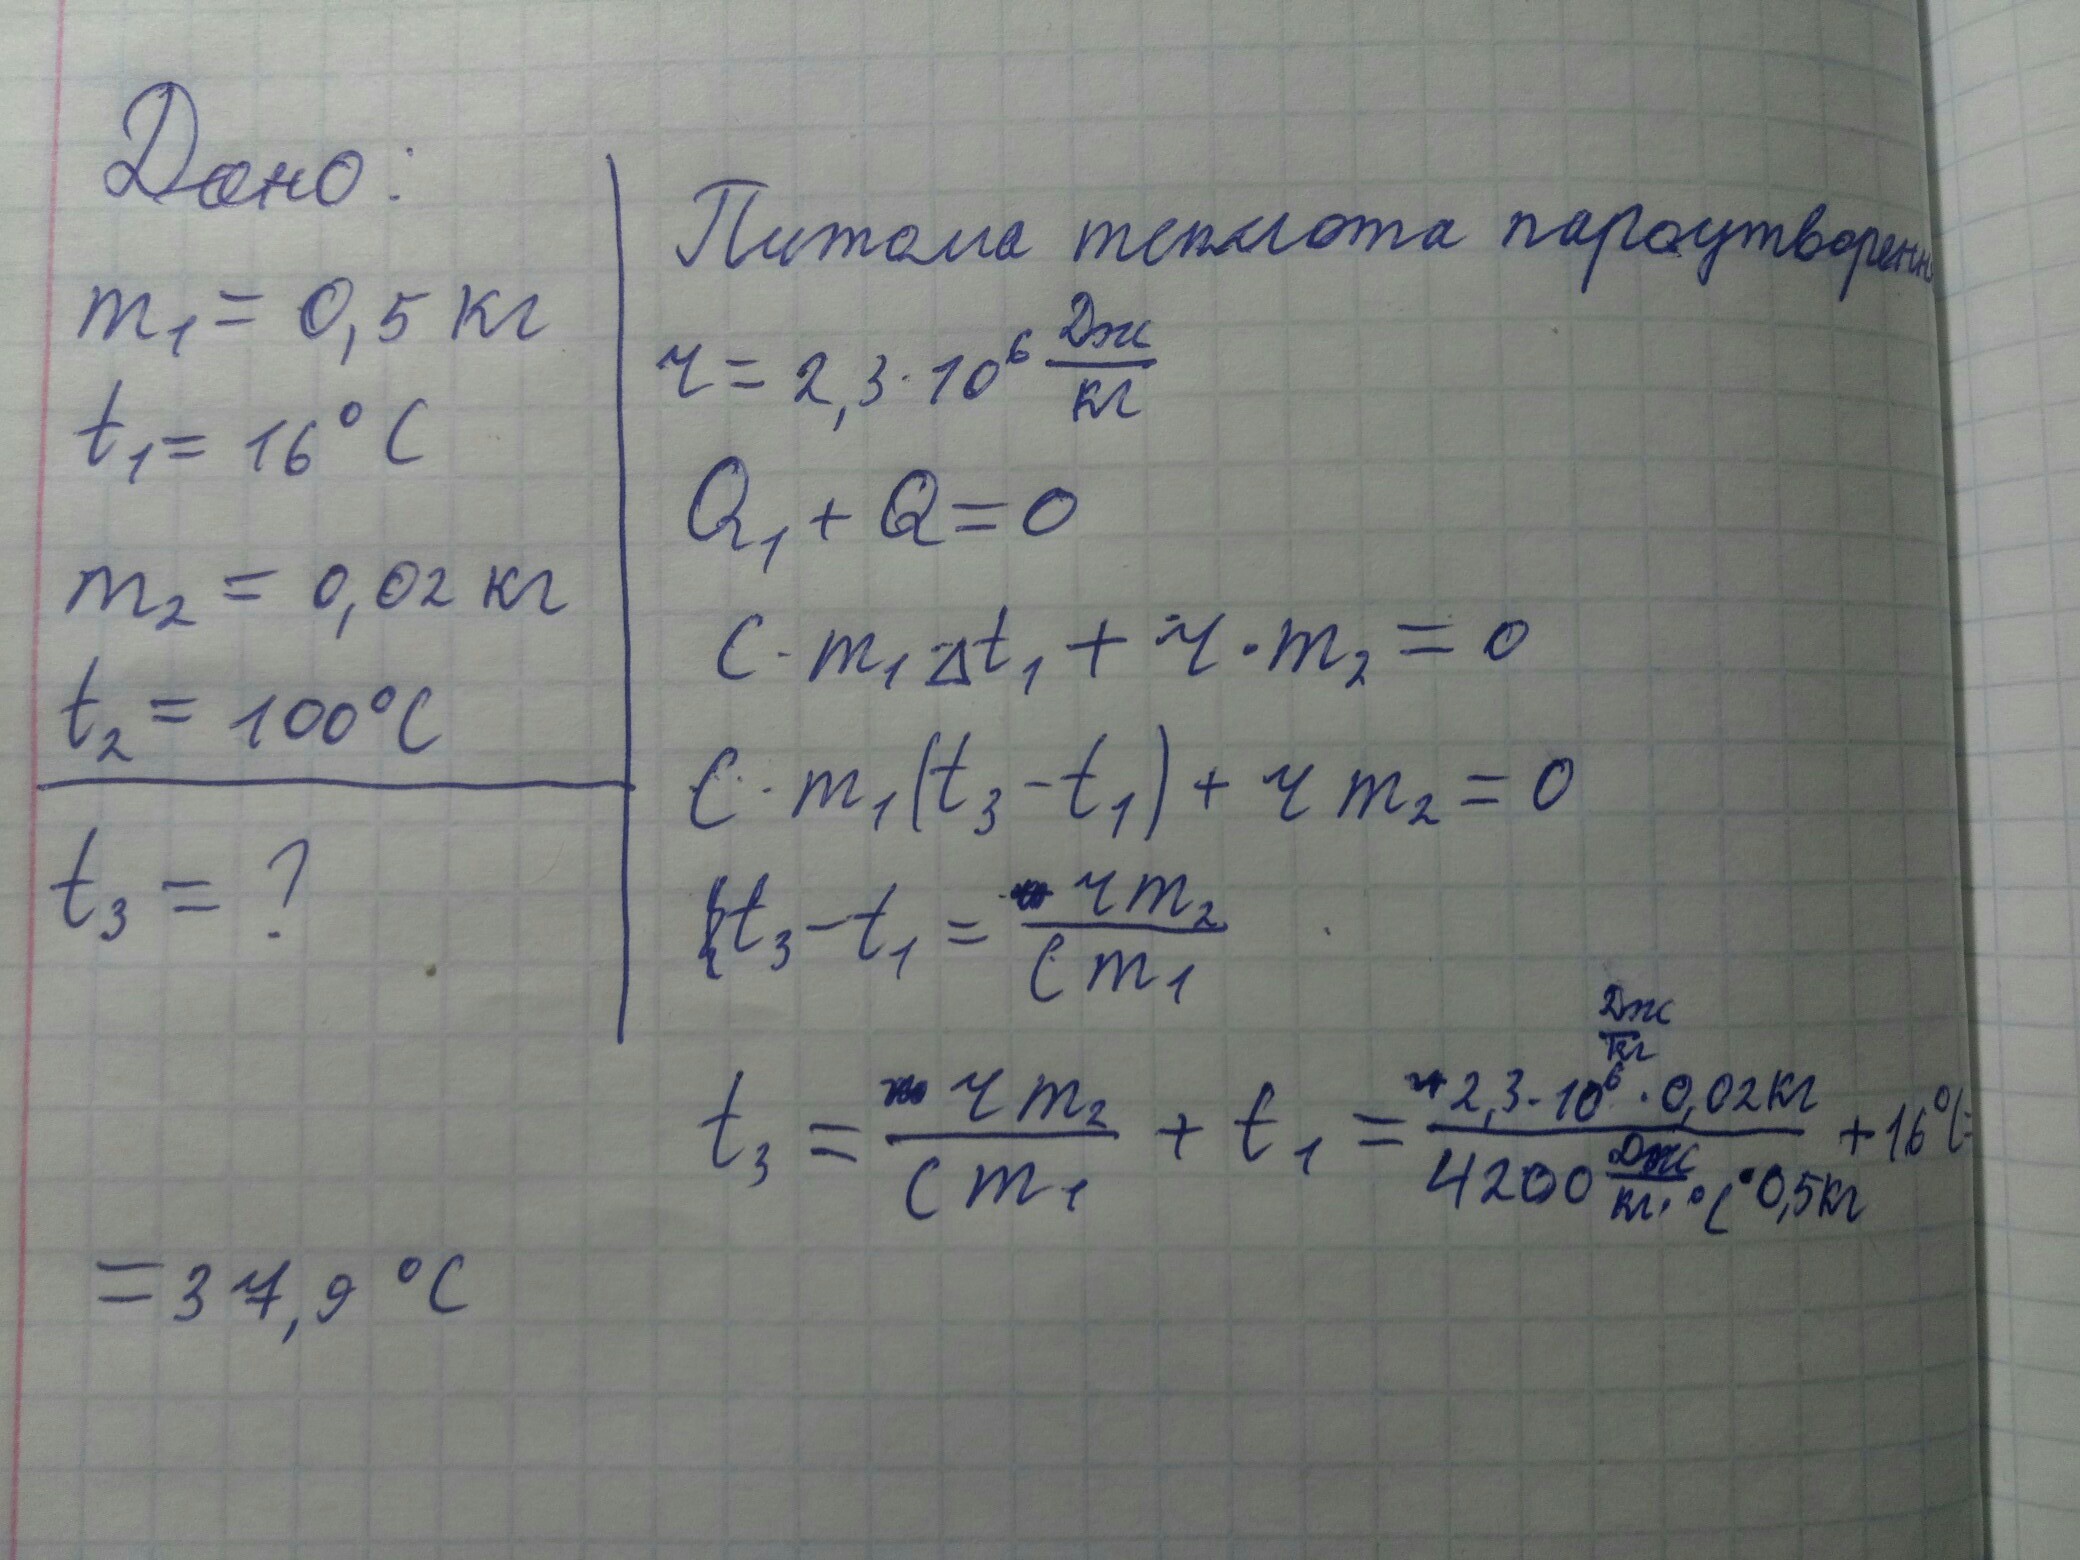 Дано:
m₁ = 0,5 кг
t₁ = 16°C
m₂ = 0,02 кг
t₂ = 100°C
t₃ = ?
Питома теплота пароутворенн
r = 2,3·10⁶ Дж/кг
Q₁ + Q = 0
C·m₁Δt₁ + r·m₂ = 0
C·m₁(t₃ - t₁) + r m₂ = 0
t₃ - t₁ = r m₂ / C m₁
t₃ = r m₂ / C m₁ + t₁ = 2,3·10⁶ Дж/кг · 0,02 кг / 4200 Дж/кг·°C · 0,5 кг + 16°C =
= 37,9 °C